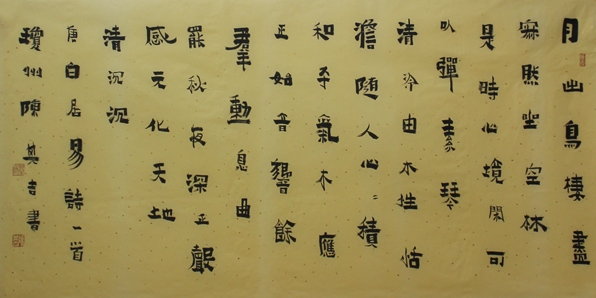 月出鳥棲盡
寂然坐空林
是時心境閑可
以彈素琴
清泠由木性恬
澹隨人心〻積
和平氣木應
正如音響餘
羣動息曲
罷秋夜深正聲
感元化天地
清沉沉
唐白居易詩一首
瓊州陳英吉書